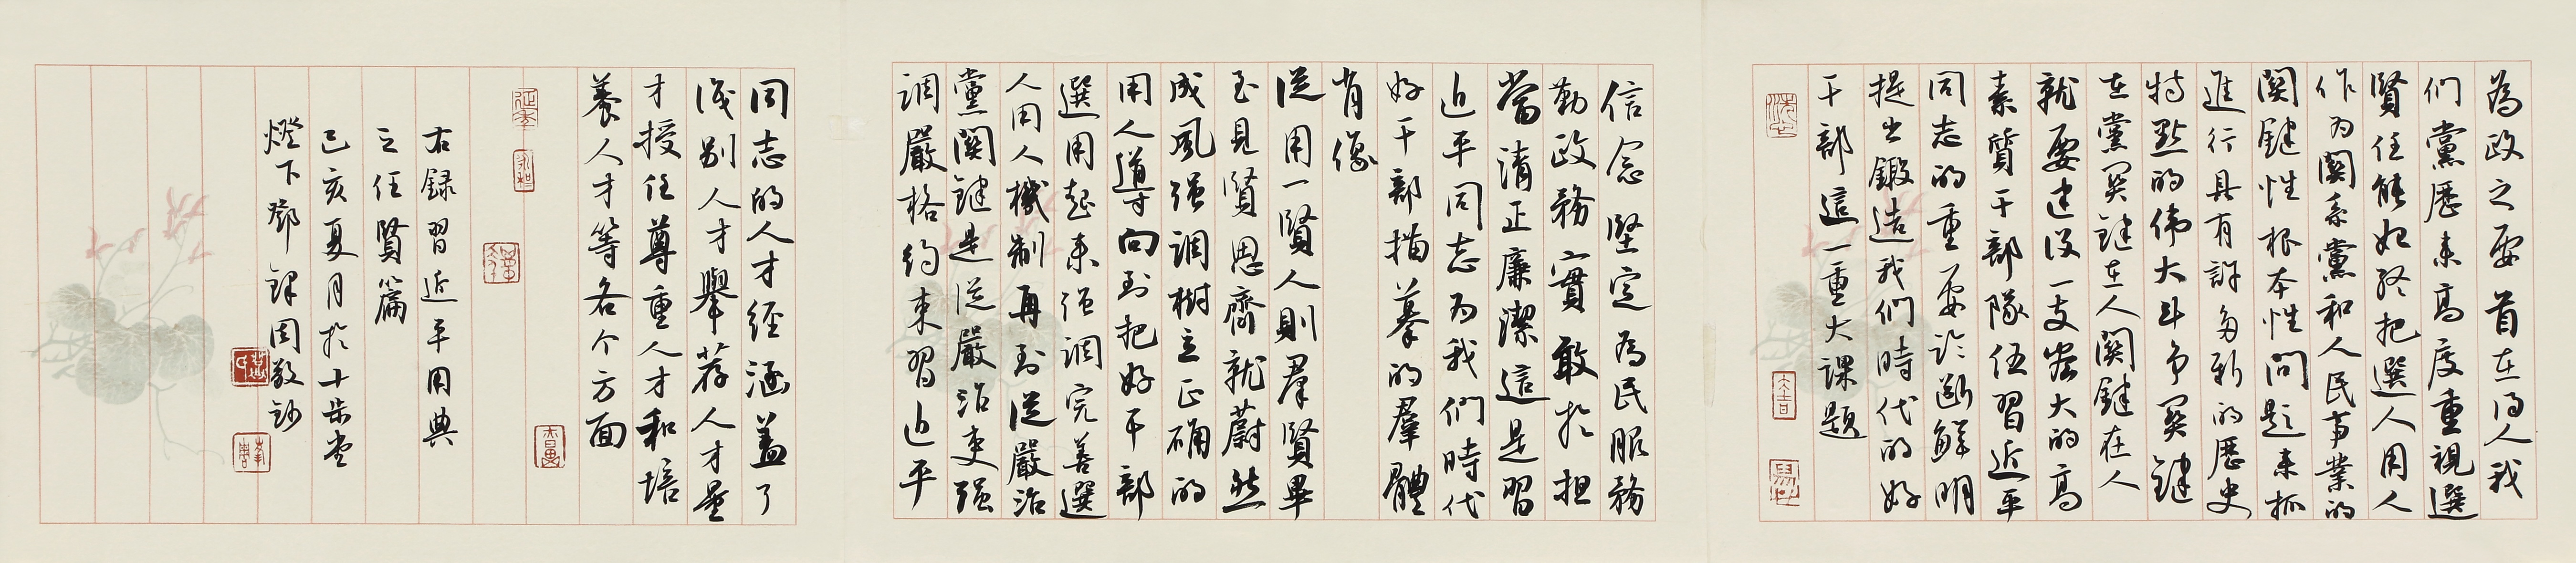 為政之要首在得人我
们黨歷来高度重視選
賢任能始终把選人用人
作为關系黨和人民事業的
關鍵性根本性問題来抓
進行具有許多新的歷史
特點的偉大斗争関鍵
在黨関鍵在人關鍵在人
就要建设一支宏大的高
素質干部隊伍習近平
同志的重要论断鮮明
提出鍛造我們時代的好
干部這一重大課題
信念堅定為民服務
勤政務實敢於担
當清正廉潔這是習
近平同志为我們時代
好干部描摹的羣體
肖像
從用一賢人則羣賢畢
至見賢思齊就蔚然
成風强調樹立正确的
用人導向到把好干部
選用起来强調完善選
人用人機制再到從嚴治
黨關鍵是從嚴治吏强
調嚴格约束習近平
同志的人才經涵盖了
识别人才舉荐人才量
才授任尊重人才和培
養人才等各个方面
右録習近平用典
之任賢篇
己亥夏月於十步堂
燈下鄧周敬鈔